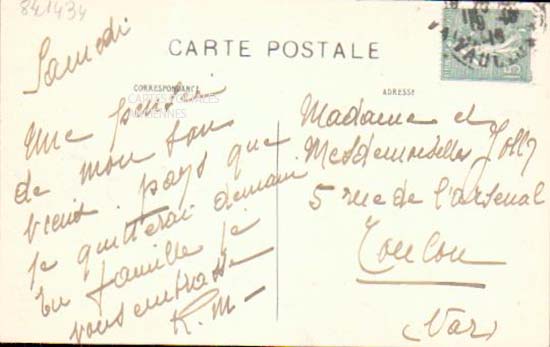 841434
CARTE POSTALE
CORRESPONDANCE
ADRESSE
CARTES POSTALES
ANCIENNES
Samedi
Une pensée
de mon bon
vieux pays que
je quitterai demain
En famille je
vous embrasse
K. M.
Madame et
Mesdemoiselles Jolly
5 rue de l'arsenal
Toulon
(Var)